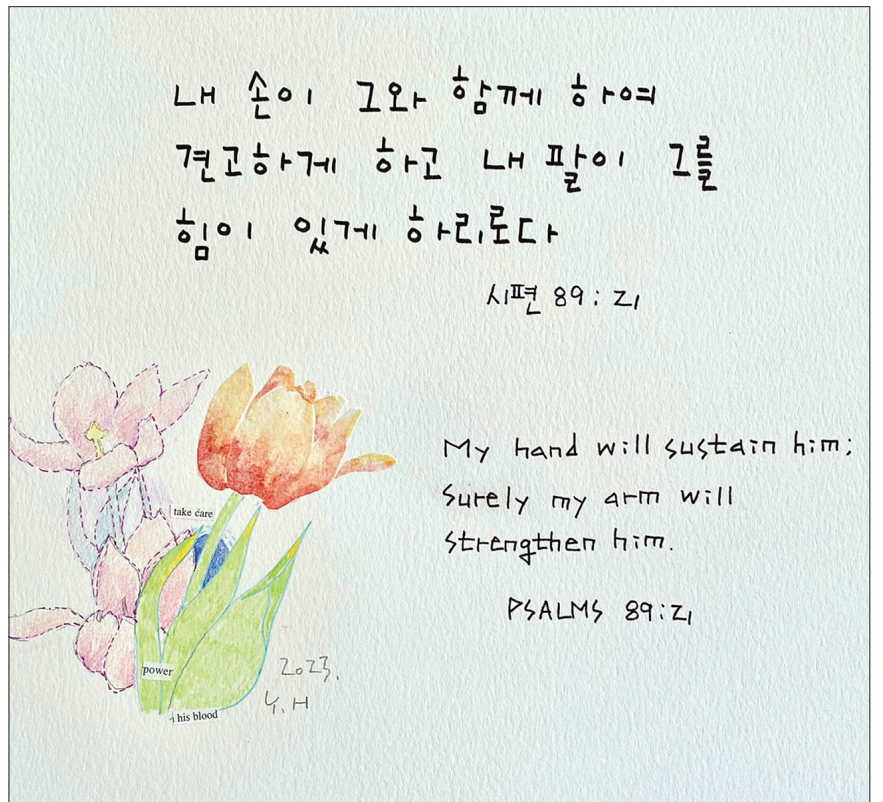 내 손이 그와 함께 하여
견고하게 하고 내 팔이 그를
힘이 있게 하리로다
시편 89:21
My hand will sustain him;
surely my arm will
strengthen him.
PSALMS 89:21
take care
power
his blood
2023.
Y.H